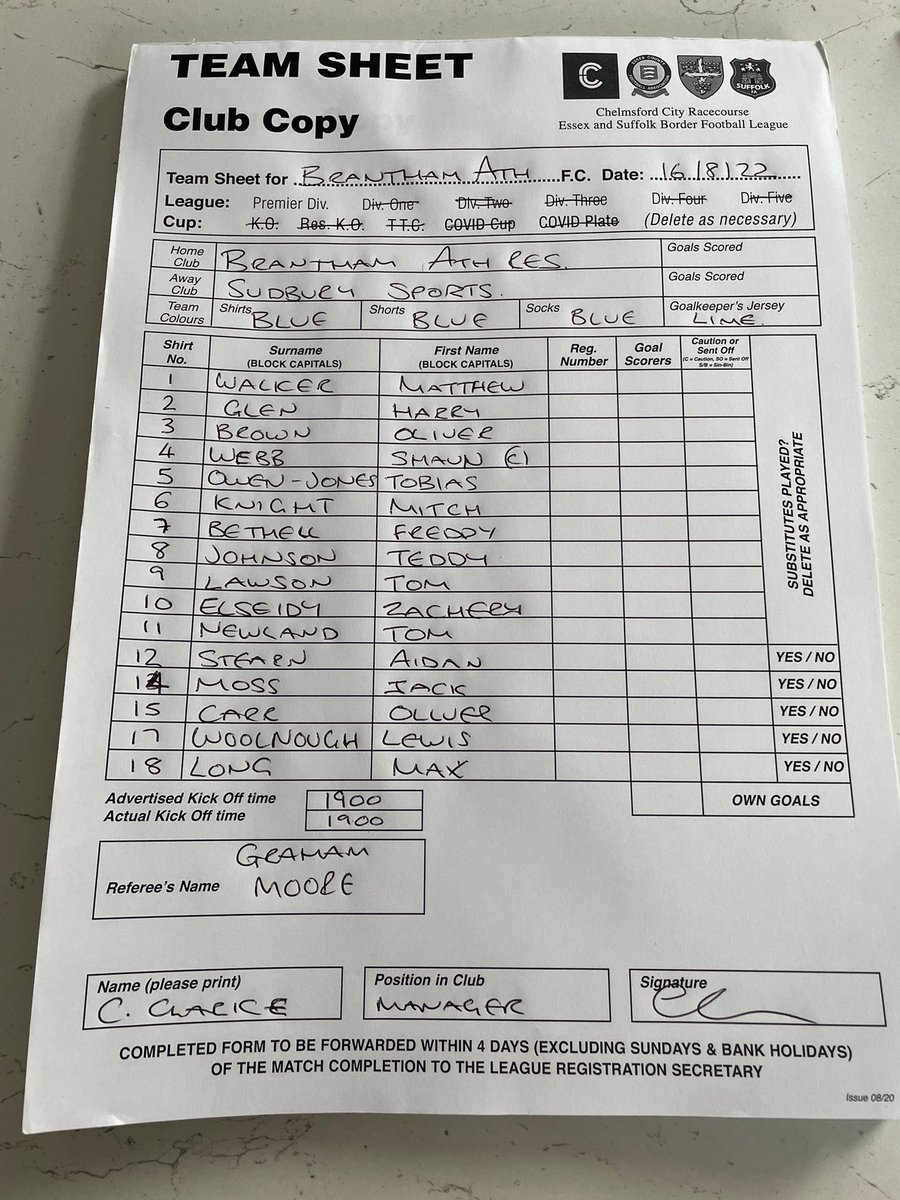 TEAM SHEET
Club Copy
C SUFFOLK
Chelmsford City Racecourse
Essex and Suffolk Border Football League
Team Sheet for BRANTHAM ATH F.C. Date: 16/8/22
League: Premier Div. Div. One Div. Two Div. Three Div. Four Div. Five
Cup: K.O. Res. K.O. T.T.C. COVID Cup COVID Plate (Delete as necessary)
Home Club BRANTHAM ATH RES. Goals Scored
Away Club SUDBURY SPORTS. Goals Scored
Team Colours Shirts BLUE Shorts BLUE Socks BLUE Goalkeeper's Jersey LIME.
Shirt No. Surname (BLOCK CAPITALS) First Name (BLOCK CAPITALS) Reg. Number Goal Scorers Caution or Sent Off (C = Caution, SO = Sent Off S/B = Sin-Bin)
SUBSTITUTES PLAYED? DELETE AS APPROPRIATE
1 WALKER MATTHEW
2 GLEN HARRY
3 BROWN OLIVER
4 WEBB SHAUN (C)
5 OWEN-JONES TOBIAS
6 KNIGHT MITCH
7 BETHELL FREDDY
8 JOHNSON TEDDY
9 LAWSON TOM
10 ELSEIDY ZACHERY
11 NEWLAND TOM
12 STEARN AIDAN YES / NO
14 MOSS JACK YES / NO
15 CARR OLLIVER YES / NO
17 WOOLNOUGH LEWIS YES / NO
18 LONG MAX YES / NO
Advertised Kick Off time 1900 OWN GOALS
Actual Kick Off time 1900
Referee's Name GRAHAM MOORE
Name (please print) Position in Club Signature
C. CLARKE MANAGER
COMPLETED FORM TO BE FORWARDED WITHIN 4 DAYS (EXCLUDING SUNDAYS & BANK HOLIDAYS)
OF THE MATCH COMPLETION TO THE LEAGUE REGISTRATION SECRETARY
Issue 08/20